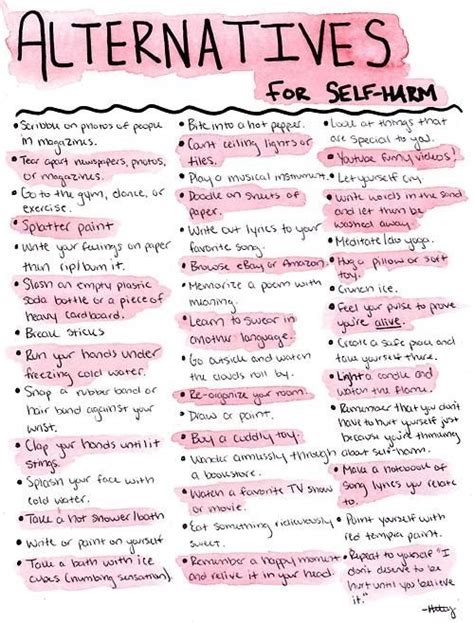 ALTERNATIVES
FOR SELF-HARM
• Scribble on photos of people
in magazines.
• Tear apart newspapers, photos,
or magazines.
• Go to the gym, dance, or
exercise.
• Splatter paint
• Write your feelings on paper
then rip/burn it.
• Slash an empty plastic
soda bottle or a piece of
heavy cardboard.
• Break sticks
• Run your hands under
freezing cold water.
• Snap a rubber band or
hair band against your
wrist.
• Clap your hands until it
stings.
• Splash your face with
cold water.
• Take a hot shower/bath
• Write or paint on yourself
• Take a bath with ice
cubes (numbing sensation).
• Bite into a hot pepper.
• Count ceiling lights or
tiles.
• Play a musical instrument.
• Doodle on sheets of
paper.
• Write out lyrics to your
favorite song.
• Browse eBay or Amazon.
• Memorize a poem with
meaning.
• Learn to swear in
another language.
• Go outside and watch
the clouds roll by.
• Re-organize your room.
• Draw or paint.
• Buy a cuddly toy.
• Wander aimlessly through
a bookstore.
• Watch a favorite TV show
or movie.
• Eat something ridiculously
sweet.
• Remember a happy moment
and relive it in your head.
• Look at things that
are special to you.
• Youtube funny videos!
• Let yourself cry.
• Write words in the sand
and let them be
washed away
• Meditate/do yoga.
• Hug a pillow or soft
toy.
• Crunch ice.
• Feel your pulse to prove
you're alive.
• Create a safe place and
take yourself there.
• Light a candle and
watch the flame.
• Remember that you don't
have to hurt yourself just
because you're thinking
about self-harm.
• Make a notebook of
song lyrics you relate
to.
• Paint yourself with
red tempra paint.
• Repeat to yourself "I
don't deserve to be
hurt until you believe
it."